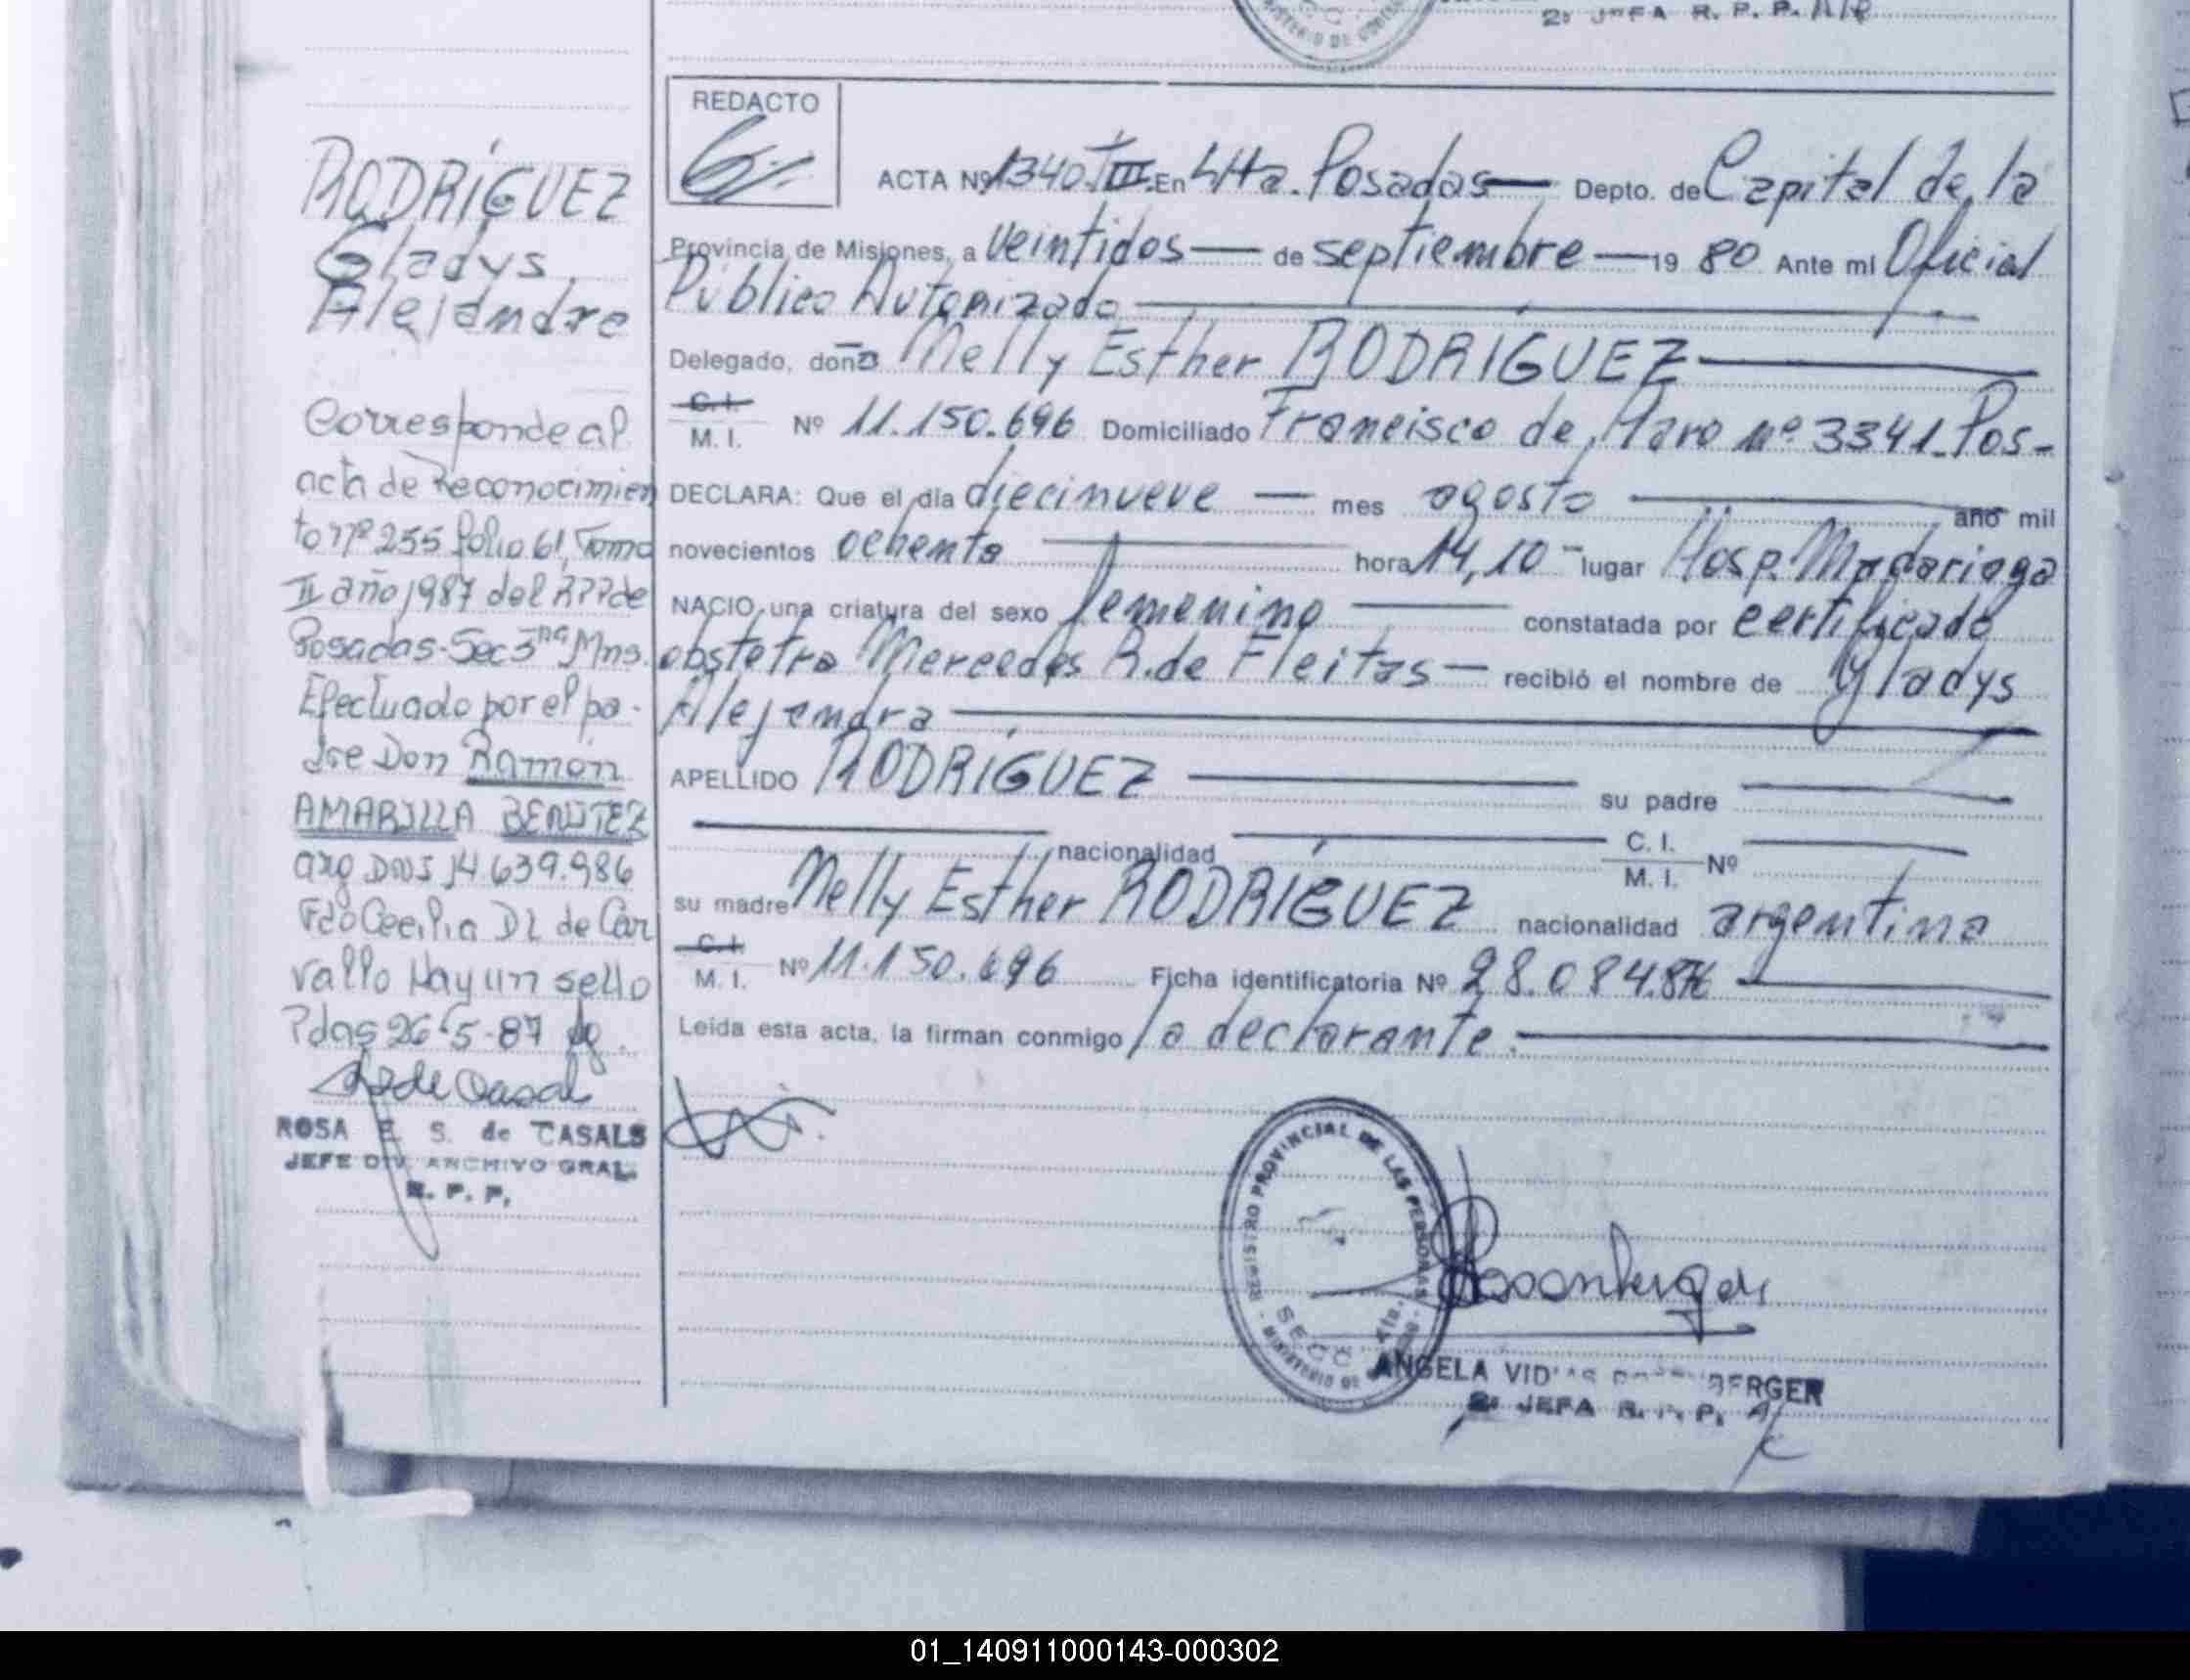 2ª JEFA R. P. P.
REDACTO
RODRÍGUEZ
Gladys
Alejandra
Corresponde al
acta de Reconocimien
to nº 255 folio 61, Tomo
II año 1987 del RPP de
Posadas-Sec 3ra Mns.
Efectuado por el pa-
dre Don Ramón
AMARILLA BENITEZ
arg DNI 14.639.986
Fdo Cecilia DL de Car
vallo Hay un sello
Pdas 26-5-87
ROSA E. S. de CASALS
JEFE DIV. ARCHIVO GRAL.
R. P. P.
ACTA Nº 1340 TIII. En 4ta. Posadas — Depto. de Capital de la
Provincia de Misiones, a veintidos — de septiembre — 19 80 Ante mi Oficial
Público Autorizado
Delegado, doña Nelly Esther RODRÍGUEZ
C. I.
M. I. Nº 11.150.696 Domiciliado Francisco de Haro nº 3341 - Pos-
DECLARA: Que el día diecinueve — mes agosto — año mil
novecientos ochenta — hora 14,10 — lugar Hosp. Madariaga
NACIO una criatura del sexo femenino — constatada por certificado
obstetra Mercedes R. de Fleitas — recibió el nombre de Gladys
Alejandra
APELLIDO RODRÍGUEZ — su padre
nacionalidad — C. I. M. I. Nº
su madre Nelly Esther RODRÍGUEZ nacionalidad argentina
C. I.
M. I. Nº 11.150.696 Ficha identificatoria Nº 28.084.876
Leida esta acta, la firman conmigo la declarante.
REGISTRO PROVINCIAL DE LAS PERSONAS
SECC. 4ta.
MINISTERIO DE
ANGELA BERGER
2ª JEFA R. P. P.
01_140911000143-000302